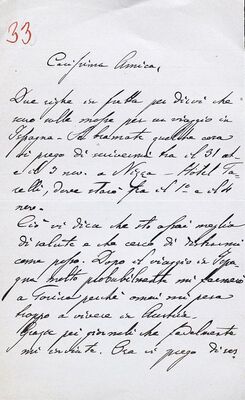 33
Carissima Amica,
Due righe in fretta per dirvi che
sono sulle mosse per un viaggio in
Ispagna - Se bramate qualche cosa
vi prego di scrivermi tra il 31 ott
e il 3 nov. a Nizza - Hôtel
dove starò fra il 1º e il 4
nov.
Ciò vi dica che sto assai meglio
di salute e che cerco di distrarmi
come posso. Dopo il viaggio in Spa
gna molto probabilmente mi fermerò
a Gorizia perchè omai mi pesa
troppo a vivere in Austria.
Grazie pei giornali che fedelmente
mi inviate. Ora vi prego di